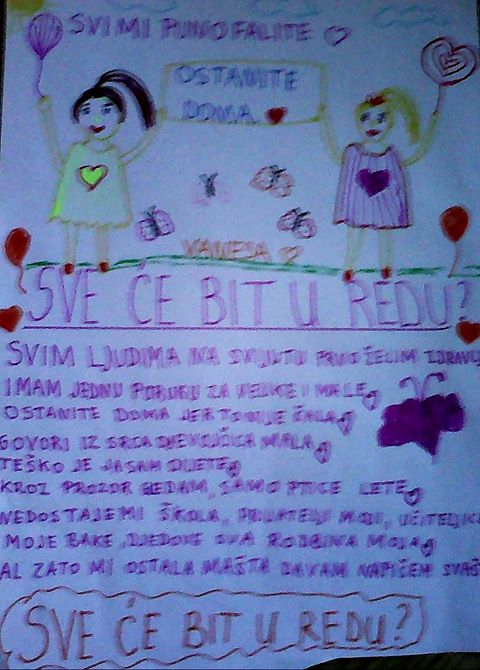 SVI MI PUNO FALITE
OSTANITE
DOMA
VANESA
SVE ĆE BIT U REDU?
SVIM LJUDIMA NA SVIJETU PRVO ŽELIM ZDRAVL
IMAM JEDNU PORUKU ZA VELIKE I MALE
OSTANITE DOMA JER TO NIJE ŠALA
GOVORI IZ SRCA DJEVOJČICA MALA
TEŠKO JE JA SAM DIJETE
KROZ PROZOR GLEDAM, SAMO PTICE LETE
NEDOSTAJE MI ŠKOLA, PRIJATELJI MOJI, UČITELJIC
MOJE BAKE, DJEDOVE SVA RODBINA MOJA
AL ZATO MI OSTALA MAŠTA DA VAM NAPIŠEM SVAŠ
SVE ĆE BIT U REDU?